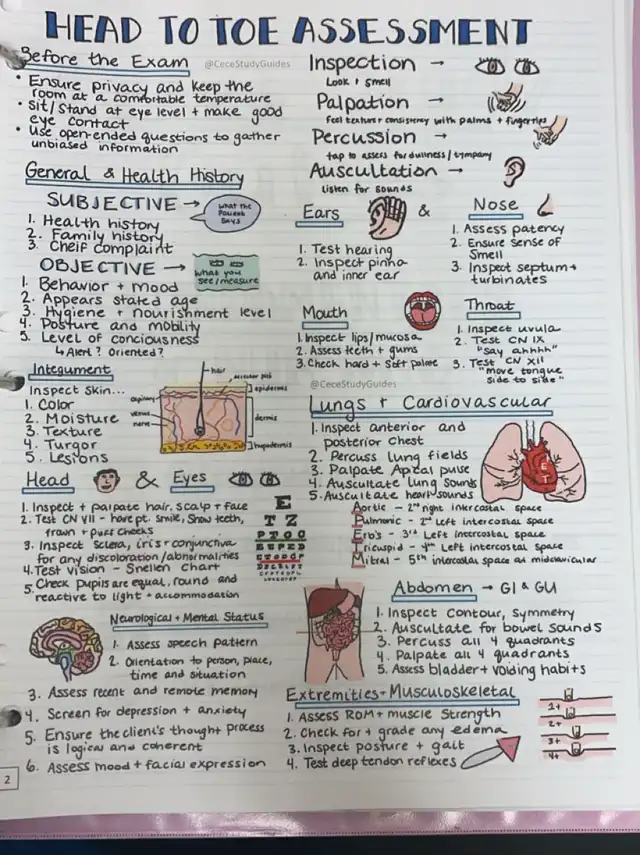 HEAD TO TOE ASSESSMENT
Before the Exam
@CeceStudyGuides
• Ensure privacy and keep the
room at a comfortable temperature
• Sit/Stand at eye level + make good
eye contact
• Use open-ended questions to gather
unbiased information
Inspection →
Look + Smell
Palpation →
feel texture + consistency with palms + fingertips
Percussion →
tap to assess for dullness / tympany
Auscultation →
listen for sounds
General & Health History
SUBJECTIVE →
what the
patient
says
1. Health history
2. Family history
3. Cheif complaint
OBJECTIVE →
what you
see/measure
1. Behavior + mood
2. Appears stated age
3. Hygiene + nourishment level
4. Posture and mobility
5. Level of conciousness
↳ Alert? Oriented?
Ears
&
Nose
1. Test hearing
2. Inspect pinna
and inner ear
1. Assess patency
2. Ensure sense of
smell
3. Inspect septum +
turbinates
Mouth
1. Inspect lips/mucosa
2. Assess teeth + gums
3. Check hard + soft palate
Throat
1. Inspect uvula
2. Test CN IX
"say ahhhh"
3. Test CN XII
"move tongue
side to side"
@CeceStudyGuides
Integument
Inspect skin...
1. Color
2. Moisture
3. Texture
4. Turgor
5. Lesions
hair
epidermis
capillary
venus
nerve
dermis
hypodermis
Lungs + Cardiovascular
1. Inspect anterior and
posterior chest
2. Percuss lung fields
3. Palpate Apical pulse
4. Auscultate lung sounds
5. Auscultate heart sounds
Aortic – 2nd right intercostal space
Pulmonic – 2nd left intercostal space
Erb's – 3rd Left intercostal space
Tricuspid – 4th Left intercostal space
Mitral – 5th intercostal space at midclavicular
Head
&
Eyes
1. Inspect + palpate hair, scalp + face
2. Test CN VII – have pt. smile, show teeth,
frown + puff cheeks
3. Inspect sclera, iris + conjunctiva
for any discoloration/abnormalities
4. Test vision – Snellen chart
5. Check pupils are equal, round and
reactive to light + accommodation
E
T Z
Neurological + Mental Status
1. Assess speech pattern
2. Orientation to person, place,
time and situation
3. Assess recent and remote memory
4. Screen for depression + anxiety
5. Ensure the client's thought process
is logical and coherent
6. Assess mood + facial expression
Abdomen → GI & GU
1. Inspect contour, symmetry
2. Auscultate for bowel sounds
3. Percuss all 4 quadrants
4. Palpate all 4 quadrants
5. Assess bladder + voiding habits
Extremities + Musculoskeletal
1. Assess ROM + muscle strength
2. Check for + grade any edema
3. Inspect posture + gait
4. Test deep tendon reflexes
1+
2+
3+
4+
2